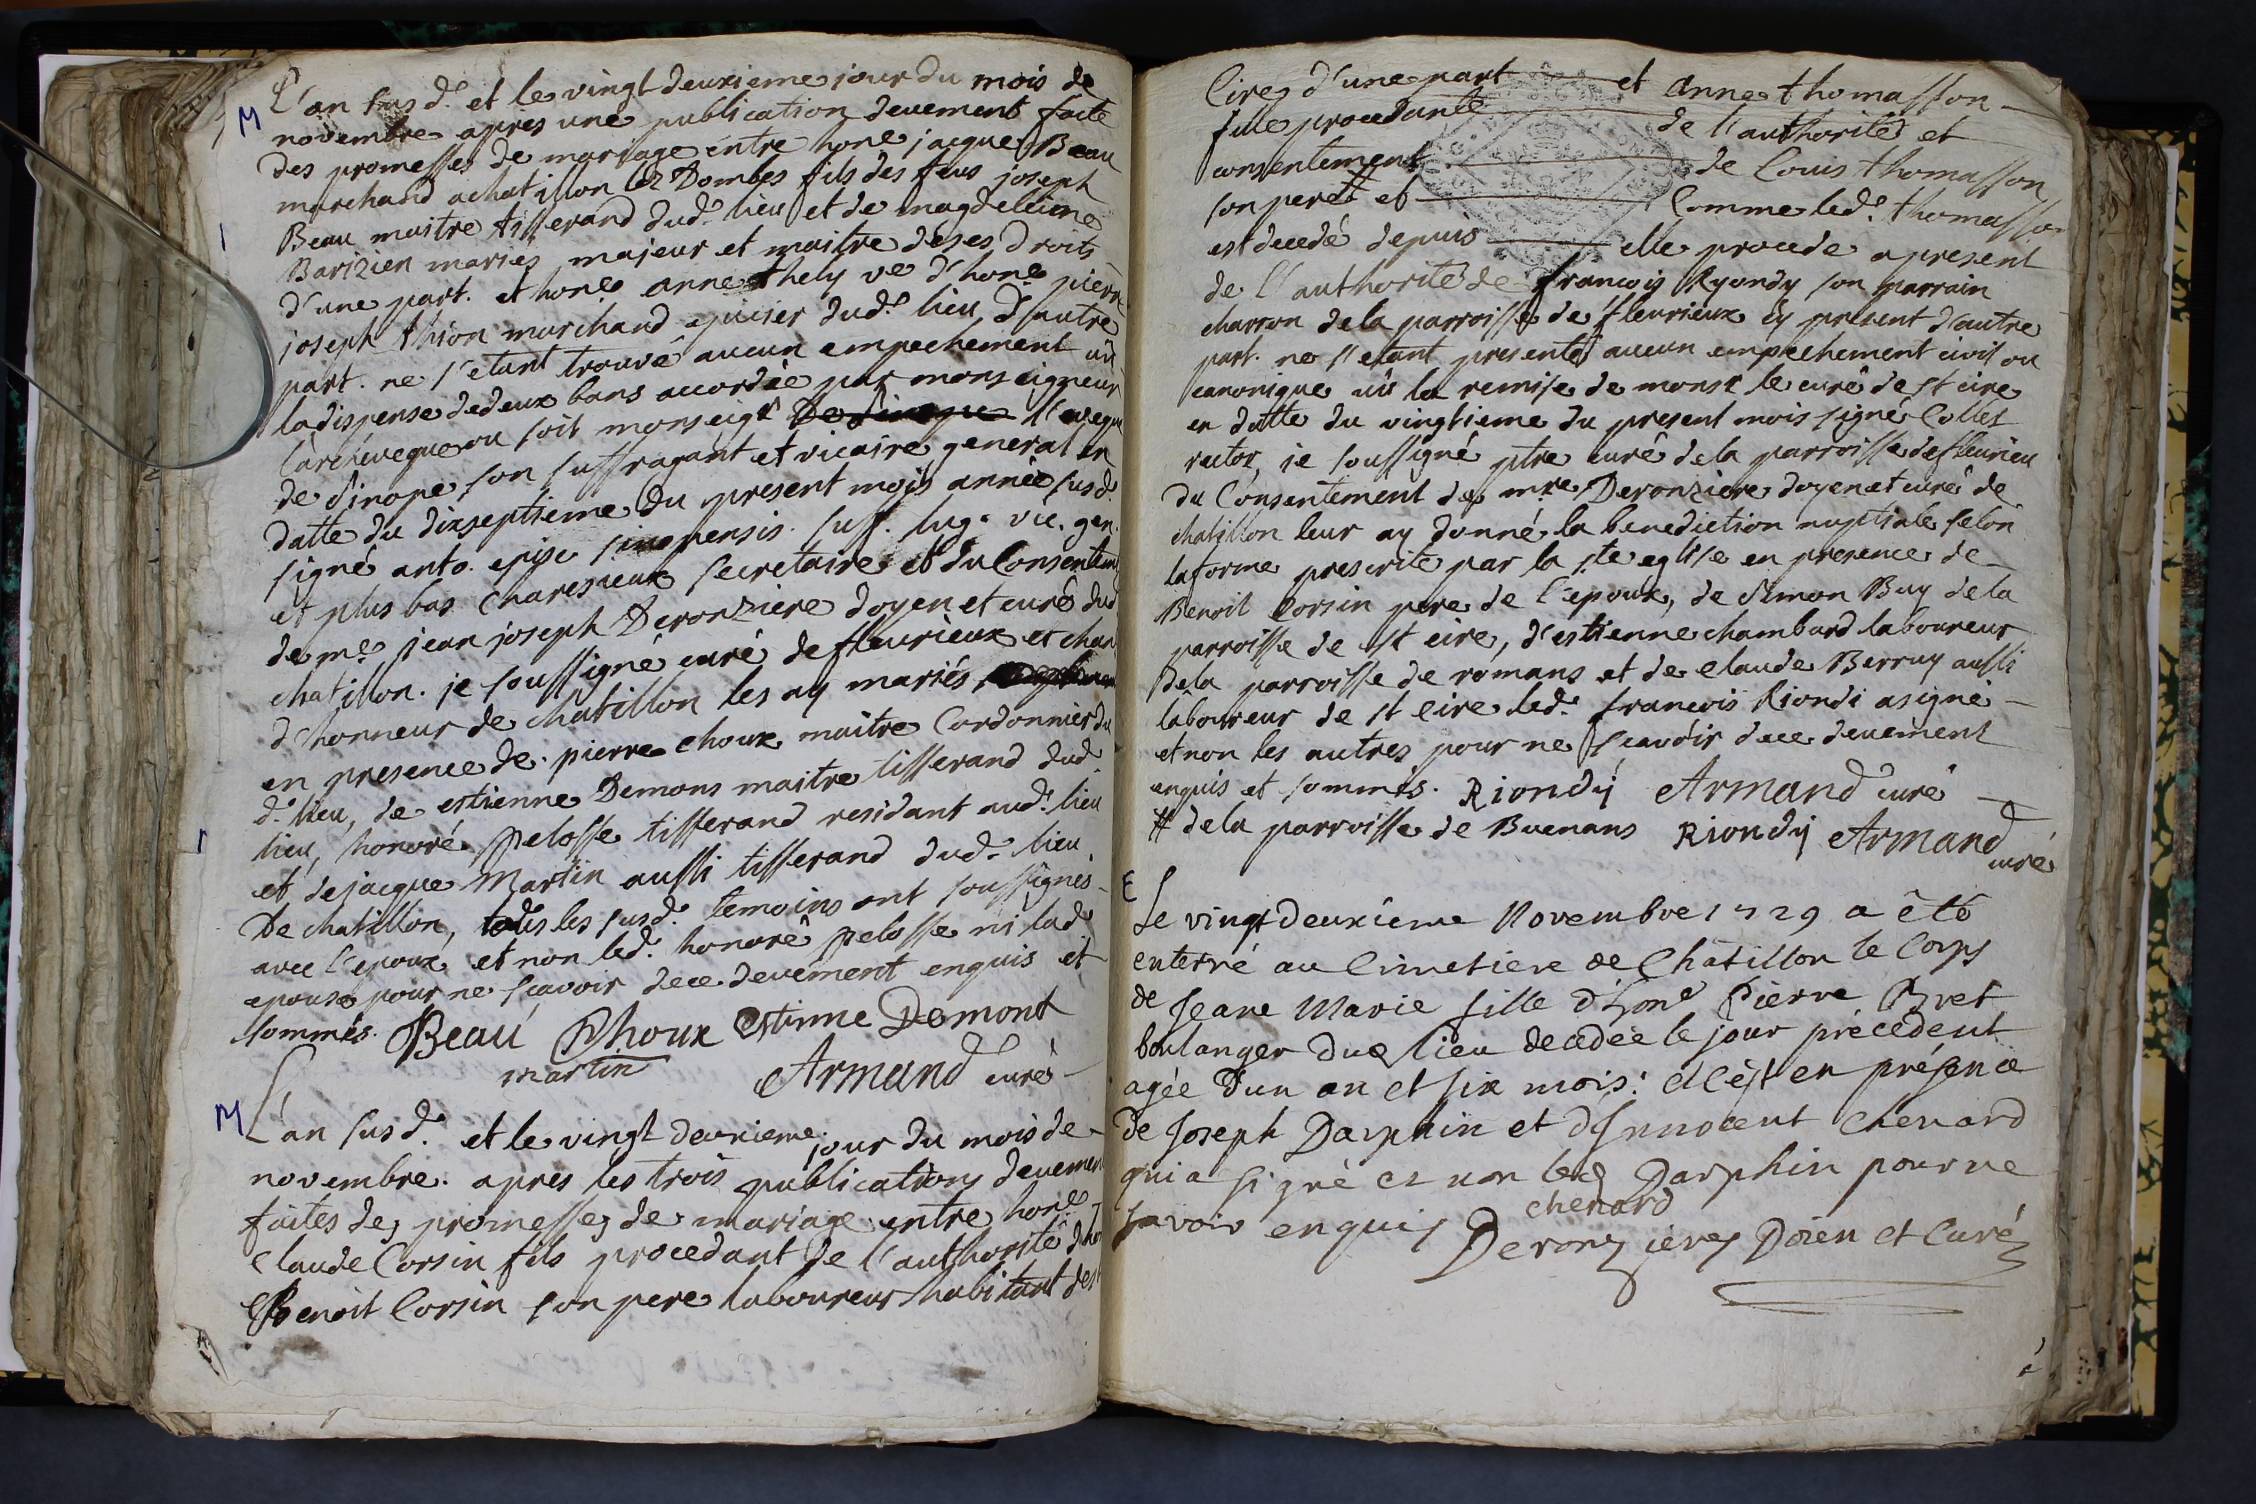 M
L'an susd.e et le vingt deuxieme jour du mois de
novembre apres une publication deuement faite
des promesses de mariage entre hone jacque Beau
marchand a chatillon les Dombes fils des feus joseph
Beau maitre tisserand dud.e lieu et de magdeleine
Barizien mariés majeur et maitre de ses droits
d'une part. et hon.e anne thely ve d'hon.e pierre
joseph thion marchand epicier dud.e lieu d'autre
part. ne s'etant trouvé aucun empechement uû
la dispense de deux bans accordée par monseigneur
l'archeveque ou soit monseigr l'eveque
de Sinope son suffragant et vicaire general en
datte du dixseptieme du present mois année susd.e
signé anto. episc sinopensis. suff. lug. vic. gen.
et plus bas Charesieux secretaire et du Consentem
de m.e jean joseph Deronziere doyen et curé dud
chatillon. je soussigné curé de fleurieux et chan
d'honneur de chatillon les ay mariés
en presence de pierre Choux maitre Cordonnier du
d.e lieu, de estienne Demons maitre tisserand dud
lieu, honoré pelosse tisserand residant aud.e lieu
et de jacque Martin aussi tisserand dud.e lieu
De chatillon, tous les susd.e temoins ont soussignés
avec l'epoux et non led.e honoré pelosse ni lad.e
epouse pour ne scavoir de ce deuement enquis et
sommés. Beau Choux estinne Demont
martin Armand curé
M
L'an susd.e et le vingt deuxieme jour du mois de
novembre. apres les trois publications deuement
faites des promesses de mariage entre hon.e
Claude Corsin fils procedant de l'authorité d'ho
Benoit Corsin son pere laboureur habitant de st
Cire d'une part et anne thomasson
fille procedante de l'authorité et
consentement de Louis thomasson
son pere # et Comme led.e thomasson
est decedé depuis elle procede a present
de l'authorité de francois Ryondy son parrain
charron de la parroisse de fleurieux cy present d'autre
part. ne s'etant presenté aucun empechement civil ou
canonique uû la remise de monsr le curé de st cire
en datte du vingtieme du present mois signé Collet
rector, je soussigné ptre curé de la parroisse de fleurieu
du Consentement de mre Deronziere doyen et curé de
chatillon leur ay donné la benediction nuptiale selon
la forme prescrite par la ste eglise en presence de
Benoit Corsin pere de l'epoux, de Simon Buy de la
parroisse de st cire, d'estienne chambard laboureur
De la parroisse de romans et de claude Berruy aussi
laboureur de st cire led.e francois Riondi a signé
et non les autres pour ne scavoir de ce deuement
enquis et sommés. Riondij Armand curé
# de la parroisse de Buenans Riondij Armand
curé
E
Le vingt deuxieme Novembre 1729 a été
enterré au Cimetiere de Châtillon le Corps
de Jeane Marie fille d'hone Pierre Bret
boulanger dud lieu decedée le jour précedent
agée d'un an et six mois: et c'est en présence
de Joseph Darphin et d'Innocent Chenard
qui a signé et non led Darphin pour ne
savoir enquis chenard
Deronzieres Doïen et Curé